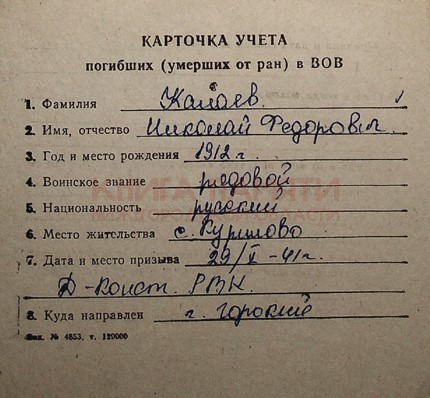 КАРТОЧКА УЧЕТА
погибших (умерших от ран) в ВОВ
1. Фамилия Канаев
2. Имя, отчество Николай Федорович
3. Год и место рождения 1912 г.
4. Воинское звание рядовой
5. Национальность русский
6. Место жительства с. Курилово
7. Дата и место призыва 29/X-41г.
Д-Конст. РВК
8. Куда направлен г. Горький
Зак. № 4853, т. 120000
КНИГА ПАМЯТИ